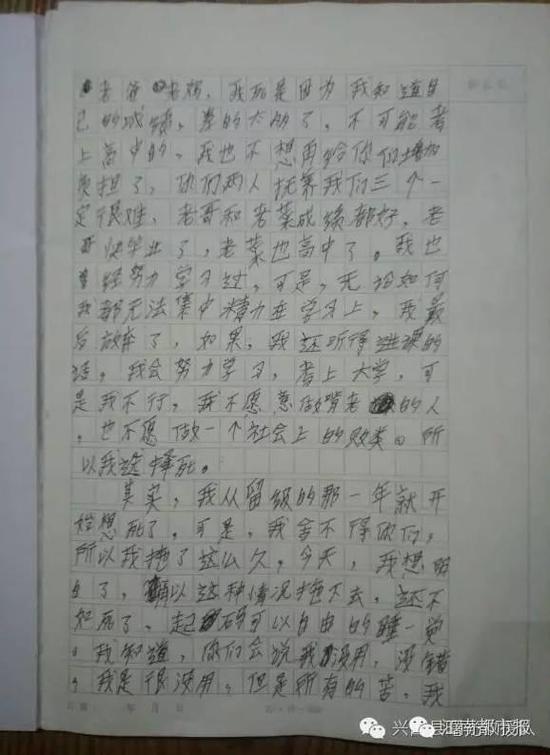 老爸老妈，我死是因为我知道自
己的成绩，差的太励了，不可能考
上高中的。我也不想再给你们增加
负担了，你们两人抚养我们三个一
定很难，老哥和老菜成绩都好，老
快毕业了，老菜也高中了。我也
经努力学习过，可是，无论如何
我都无法集中精力在学习上，我最
后放弃了，如果，我还听得进课的
话，我会努力学习，考上大学，可
是我不行，我不愿意做啃老的人
，也不愿做一个社会上的败类。所
以我选择死。
其实，我从留级的那一年就开
始想死了，可是，我舍不得你们，
所以我拖了这么久，今天，我想明
白了，以这种情况拖下去，还不
如死了，起码可以自由的睡一觉
。我知道，你们会说我没用，没错
，我是很没用，但是所有的苦，我
年 月 日